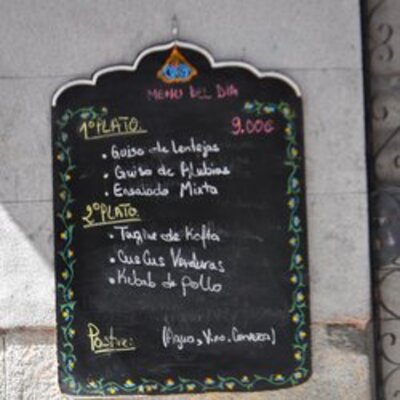 MENU DEL DIA
1º PLATO. 9.00€
• Guiso de Lentejas
• Guiso de Alubias
• Ensalada Mixta
2º PLATO.
• Tagine de Kofta
• Cus Cus Verduras
• Kebab de pollo
Postre: (Agua, Vino. Cerveza)